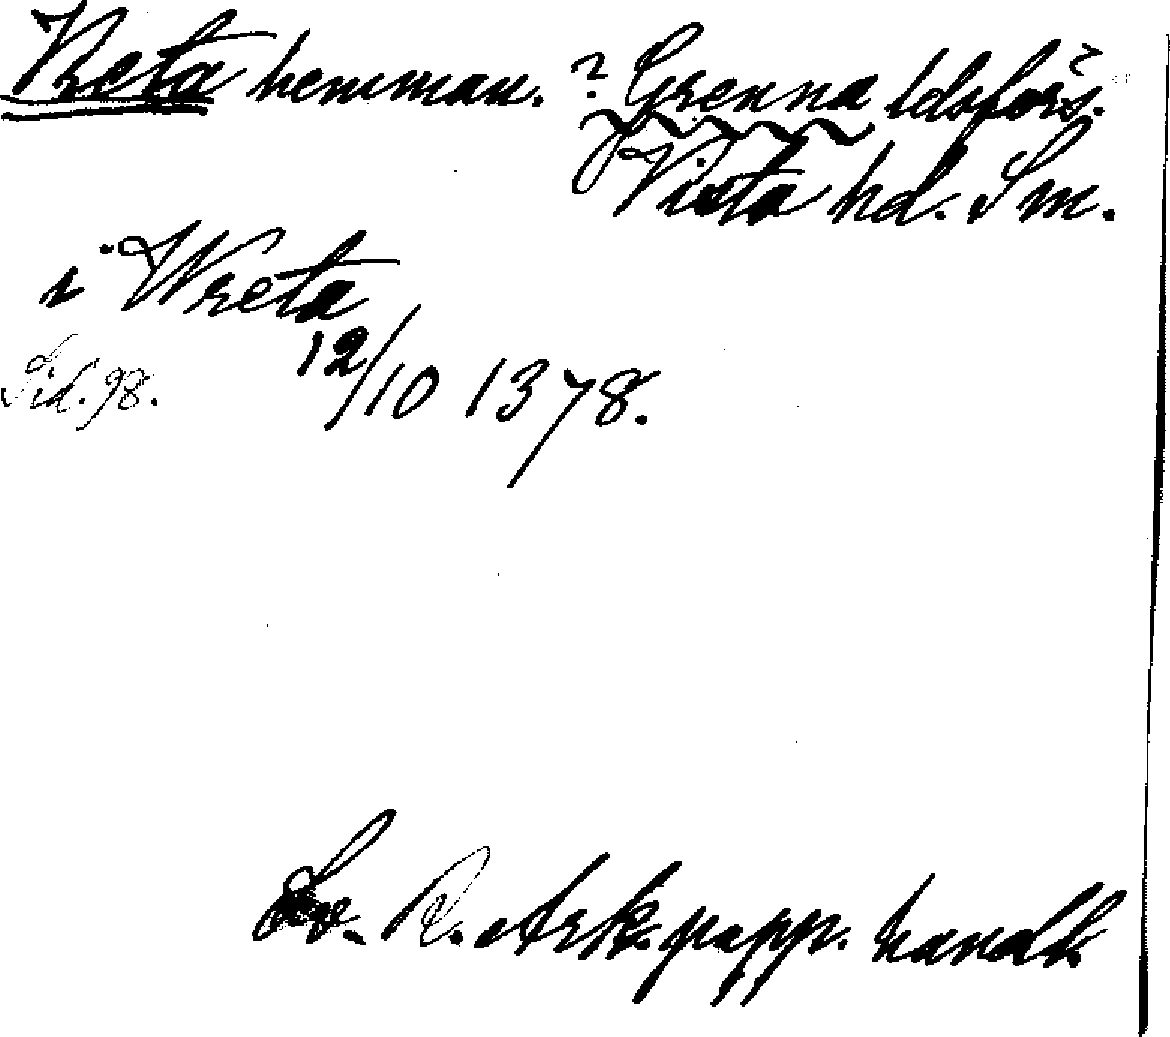 Vreta hemman. ? Grenna ldsförs.
Vista hd. Sm.
i Wreta
12/10 1378.
Sid. 98.
Sv. R. Ark. papp. handl.